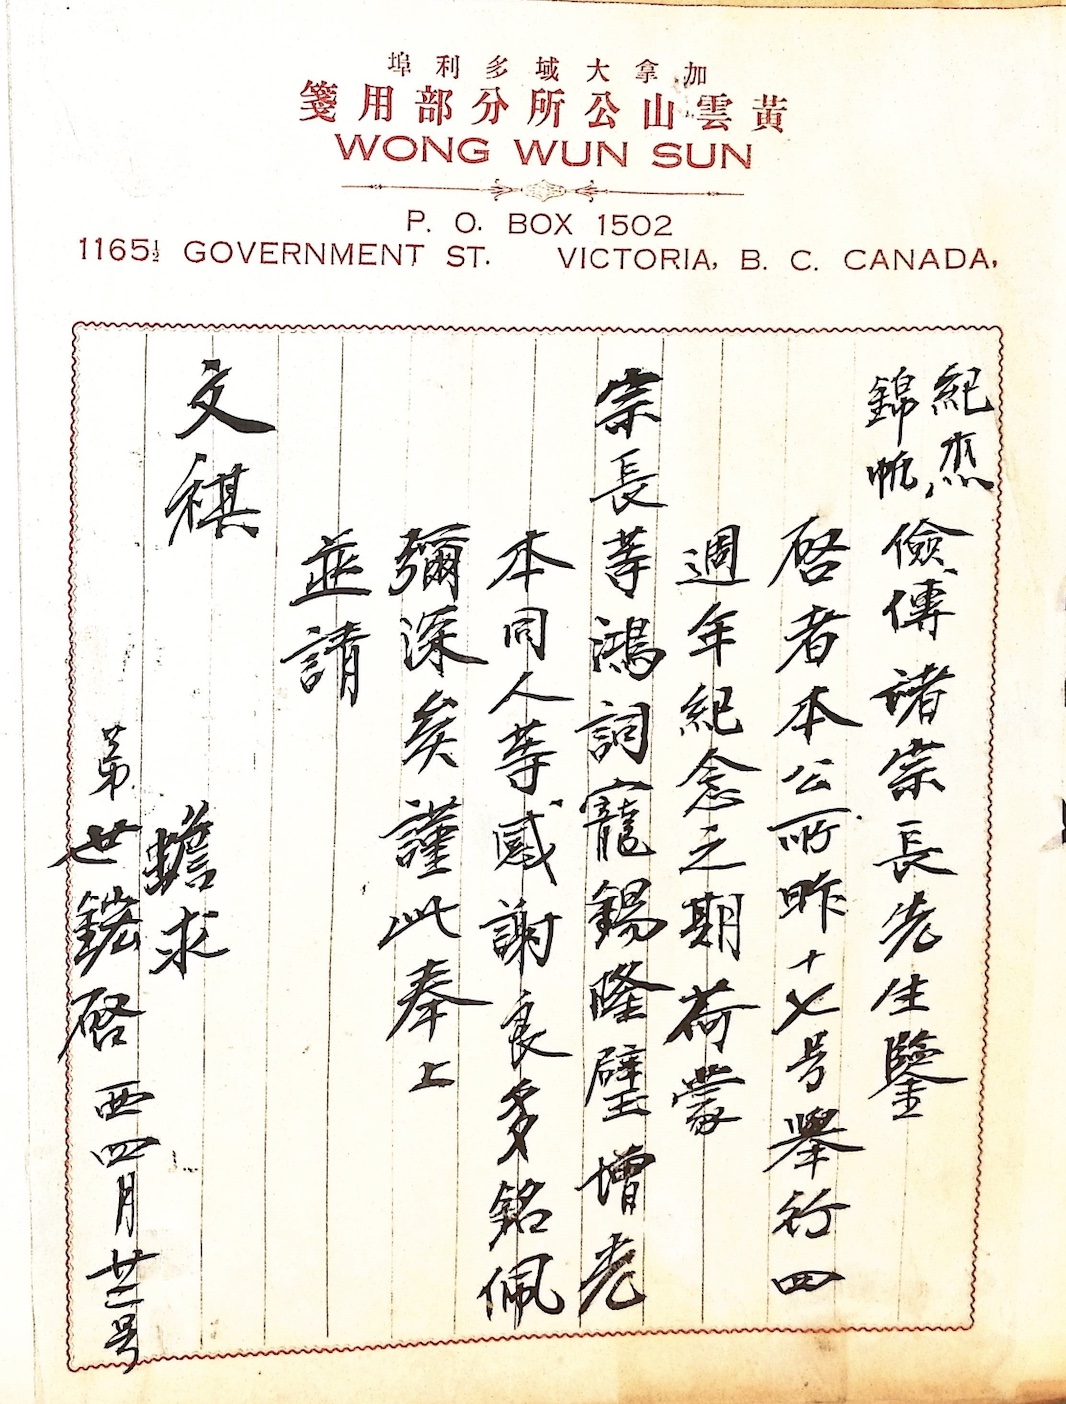 加拿大域多利埠
黃雲山公所分部用箋
WONG WUN SUN
P. O. BOX 1502
1165½ GOVERNMENT ST. VICTORIA, B. C. CANADA,
紀杰
錦帆
儉傳諸宗長先生鑒
啓者本公所昨十七号舉行四
週年紀念之期荷蒙
宗長等鴻詞寵錫隆璧增光
本同人等感謝良多銘佩
彌深矣謹此奉上
並請
文祺
弟
蟾求
世鋐啓
西四月廿一号